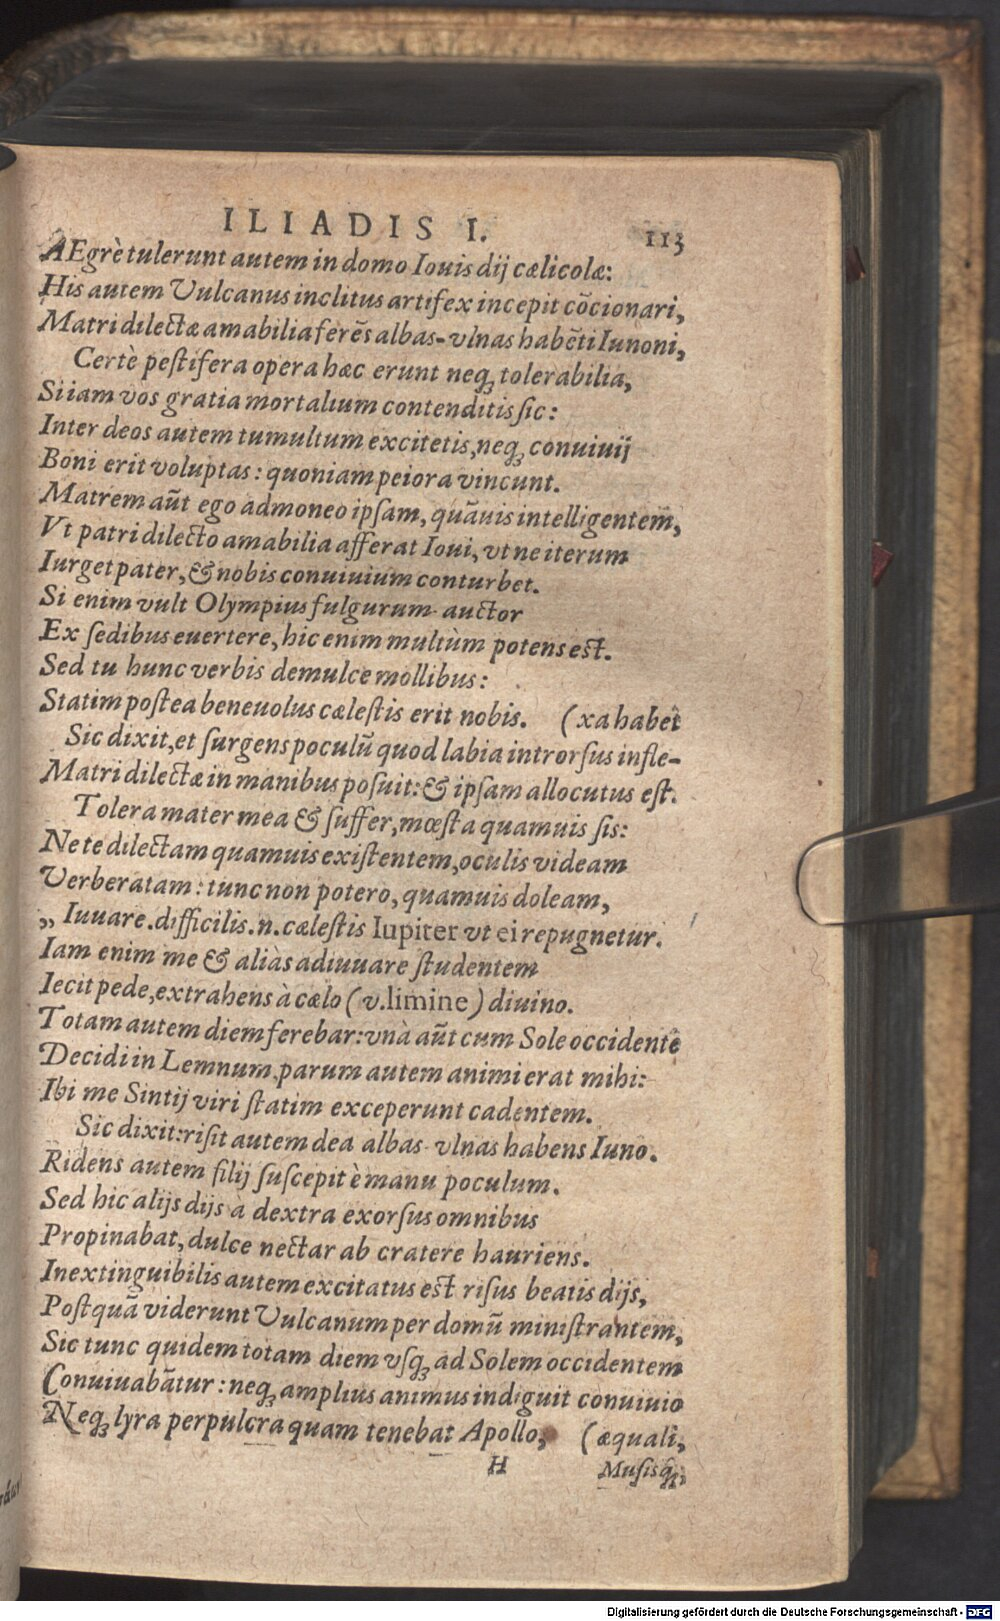 ILIADIS I. 113
AEgrè tulerunt autem in domo Iouis dij cælicolæ:
His autem Vulcanus inclitus artifex incepit cōcionari,
Matri dilectæ amabilia ferēs albas-vlnas habēti Iunoni,
Certè pestifera opera hæc erunt neq; tolerabilia,
Si iam vos gratia mortalium contenditis sic:
Inter deos autem tumultum excitetis, neq; conuiuij
Boni erit voluptas: quoniam peiora vincunt.
Matrem aūt ego admoneo ipsam, quāuis intelligentem,
Vt patri dilecto amabilia afferat Ioui, vt ne iterum
Iurget pater, & nobis conuiuium conturbet.
Si enim vult Olympius fulgurum auctor
Ex sedibus euertere, hic enim multùm potens est.
Sed tu hunc verbis demulce mollibus:
Statim postea beneuolus cælestis erit nobis. (xa habēt
Sic dixit, et surgens poculū quod labia introrsus infle-
Matri dilectæ in manibus posuit: & ipsam allocutus est.
Tolera mater mea & suffer, mœsta quamuis sis:
Ne te dilectam quamuis existentem, oculis videam
Verberatam: tunc non potero, quamuis doleam,
„ Iuuare. difficilis .n. cælestis Iupiter vt ei repugnetur.
Iam enim me & aliàs adiuuare studentem
Iecit pede, extrahens à cælo (v. limine) diuino.
Totam autem diem ferebar: vnà aūt cum Sole occidentē
Decidi in Lemnum, parum autem animi erat mihi:
Ibi me Sintij viri statim exceperunt cadentem.
Sic dixit: risit autem dea albas-vlnas habens Iuno.
Ridens autem filij suscepit è manu poculum.
Sed hic alijs dijs à dextra exorsus omnibus
Propinabat, dulce nectar ab cratere hauriens.
Inextinguibilis autem excitatus est risus beatis dijs,
Postquā viderunt Vulcanum per domū ministrantem,
Sic tunc quidem totam diem vsq; ad Solem occidentem
Conuiuabātur: neq; amplius animus indiguit conuiuio
Neq; lyra perpulcra quam tenebat Apollo, (æquali,
H Musisq;,
Digitalisierung gefördert durch die Deutsche Forschungsgemeinschaft - DFG